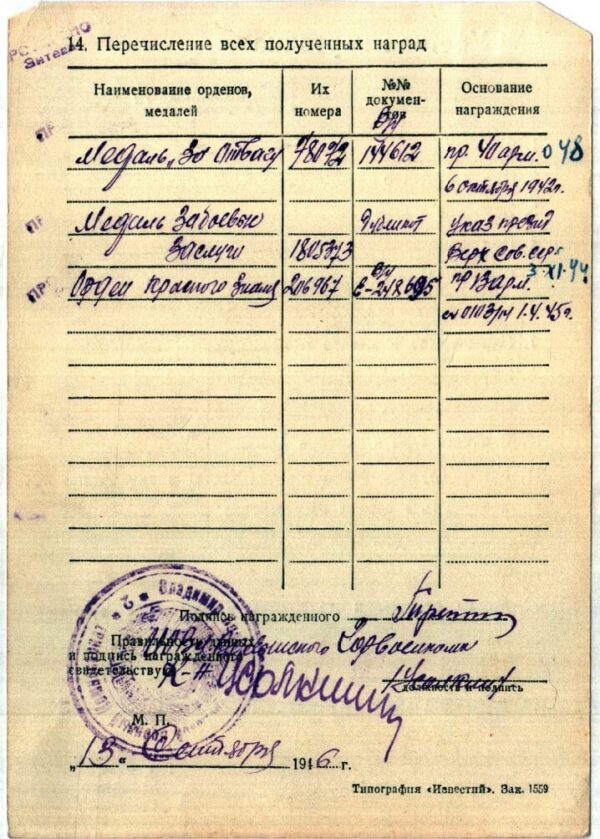 14. Перечисление всех полученных наград
Наименование орденов, медалей
Их номера
№№ документов
Основание награждения
Медаль „За Отвагу 78072 144612 пр. 40 арм. 048
6 октября 1942г.
Медаль За боевые Дубликат Указ презид
Заслуги 1805373 Верх Сов. ссср
3-XI-44
Орден Красного Знамя 206967 Е-248695 пр Варм.
1.4.45г.
Подпись награжденного
Правильность данных
и подпись награжденного Горвоенком
свидетельствую
Усолкин
должность и подпись
М. П.
„13“ Сентября 1946 г.
Типография «Известий». Зак. 1559